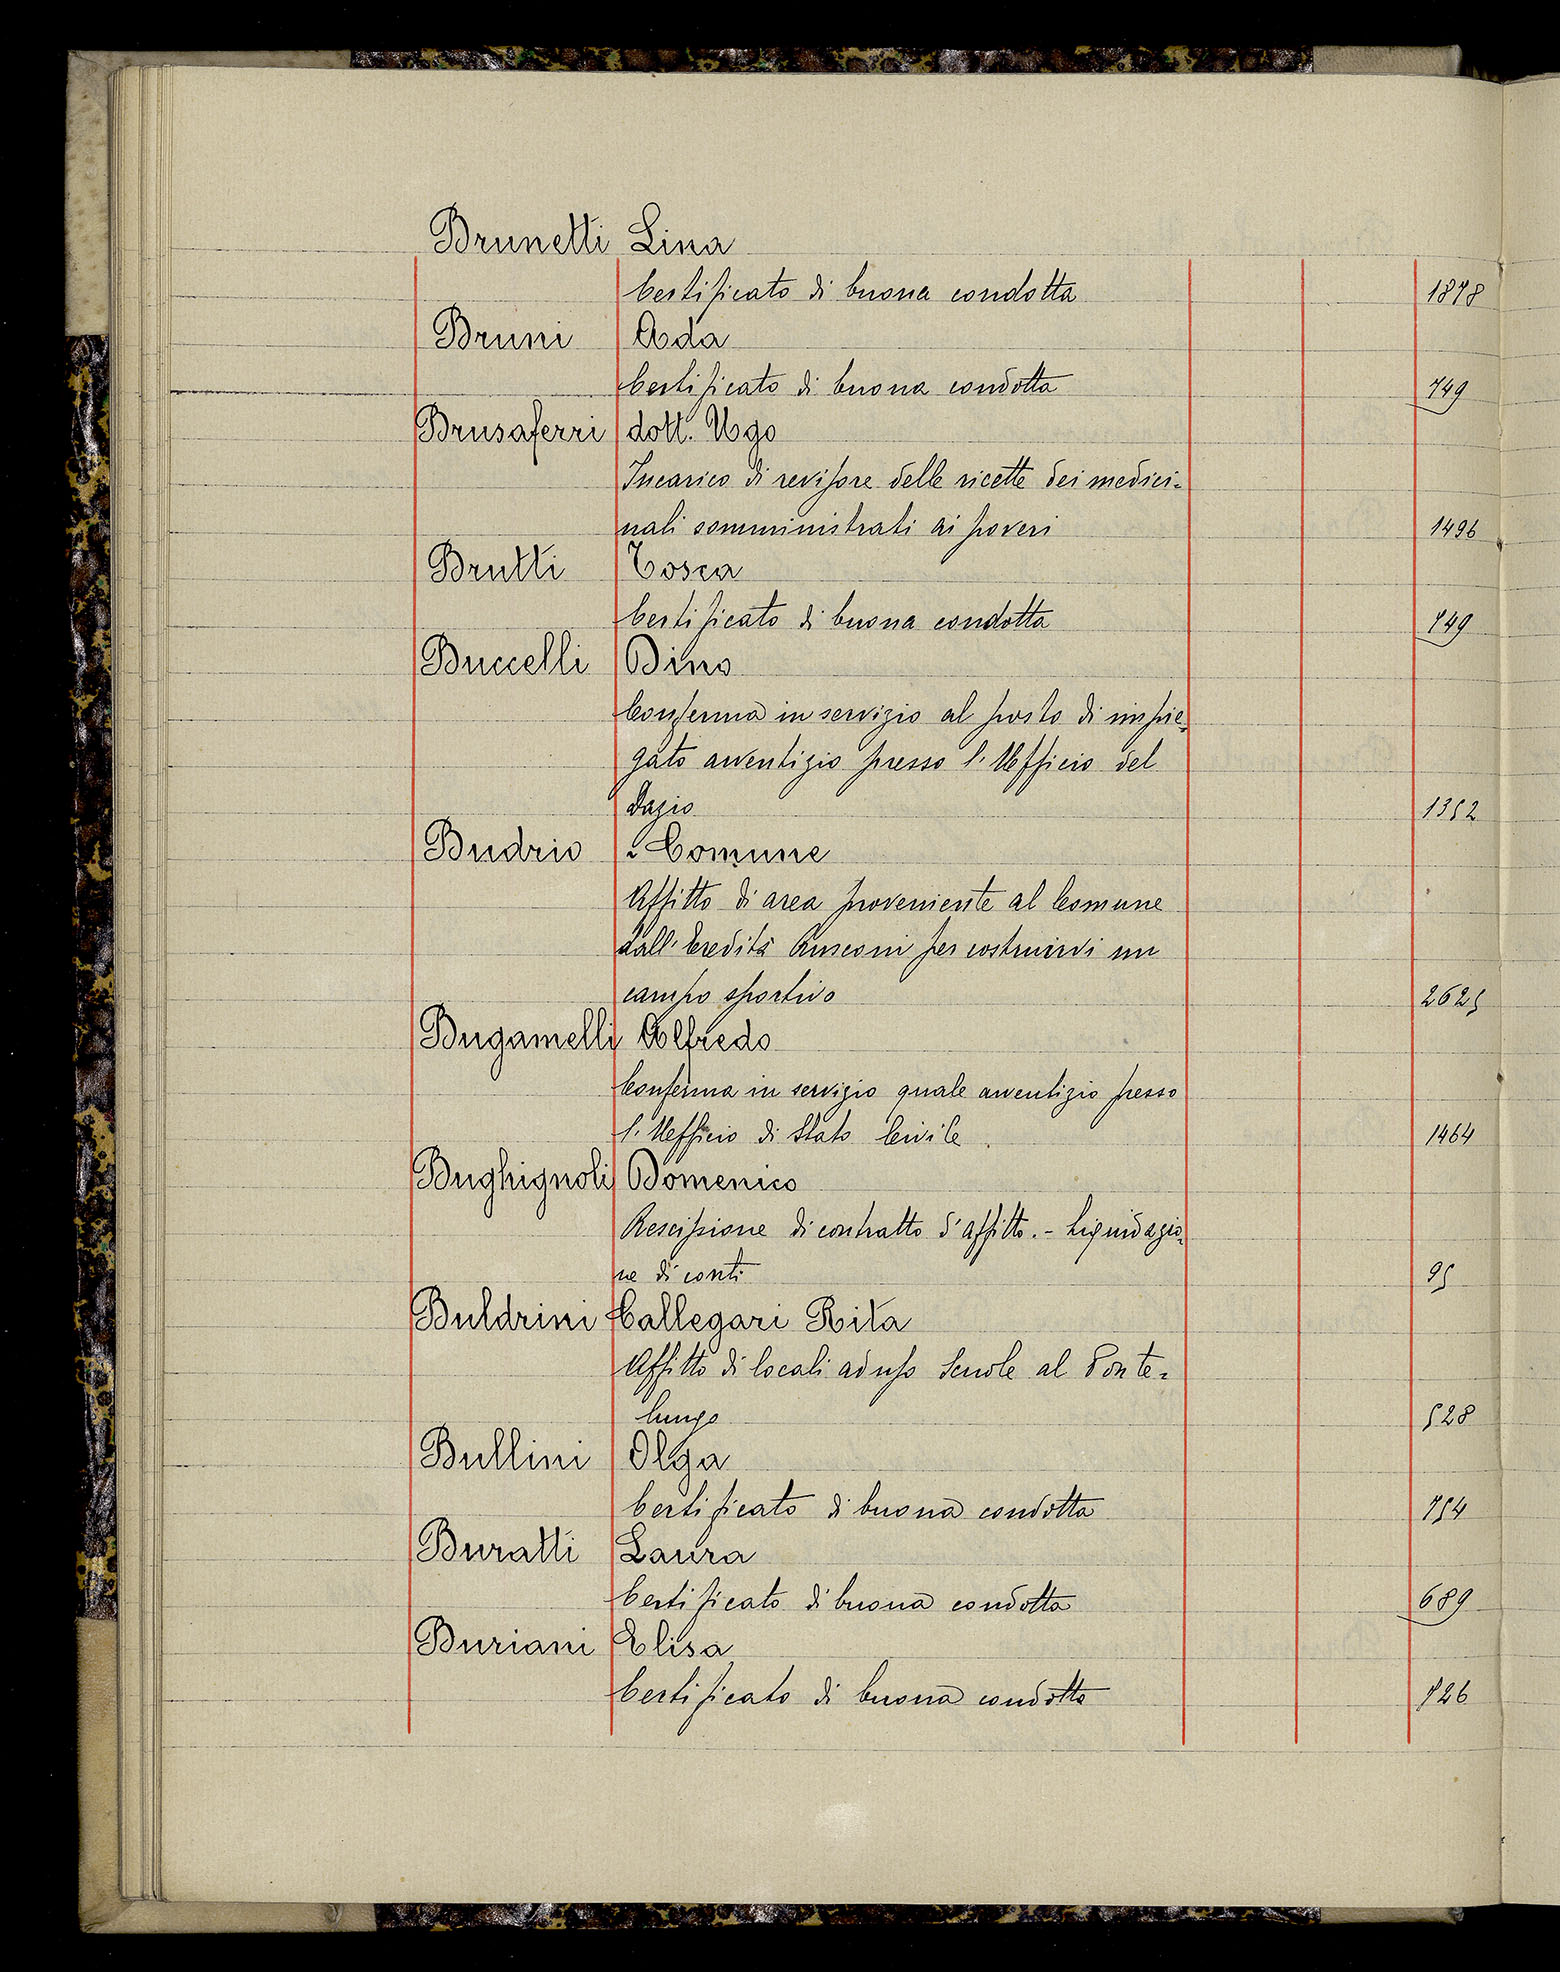 Brunetti Lina
Certificato di buona condotta 1878
Bruni Ada
Certificato di buona condotta 749
Brusaferri dott. Ugo
Incarico di revisore delle ricette dei medici=
nali somministrati ai poveri 1496
Brutti Tosca
Certificato di buona condotta 749
Buccelli Dino
Conferma in servizio al posto di impie=
gato avventizio presso l'Ufficio del
Dazio 1352
Budrio - Comune
Affitto di area proveniente al Comune
dall'Eredità Rusconi per costruirvi un
campo sportivo 2625
Bugamelli Alfredo
Conferma in servizio quale avventizio presso
l'Ufficio di Stato Civile 1464
Bughignoli Domenico
Rescissione di contratto d'affitto. - Liquidazio=
ne di conti 95
Buldrini Callegari Rita
Affitto di locali ad uso Scuole al Ponte=
lungo 528
Bullini Olga
Certificato di buona condotta 754
Buratti Laura
Certificato di buona condotta 689
Buriani Elisa
Certificato di buona condotta